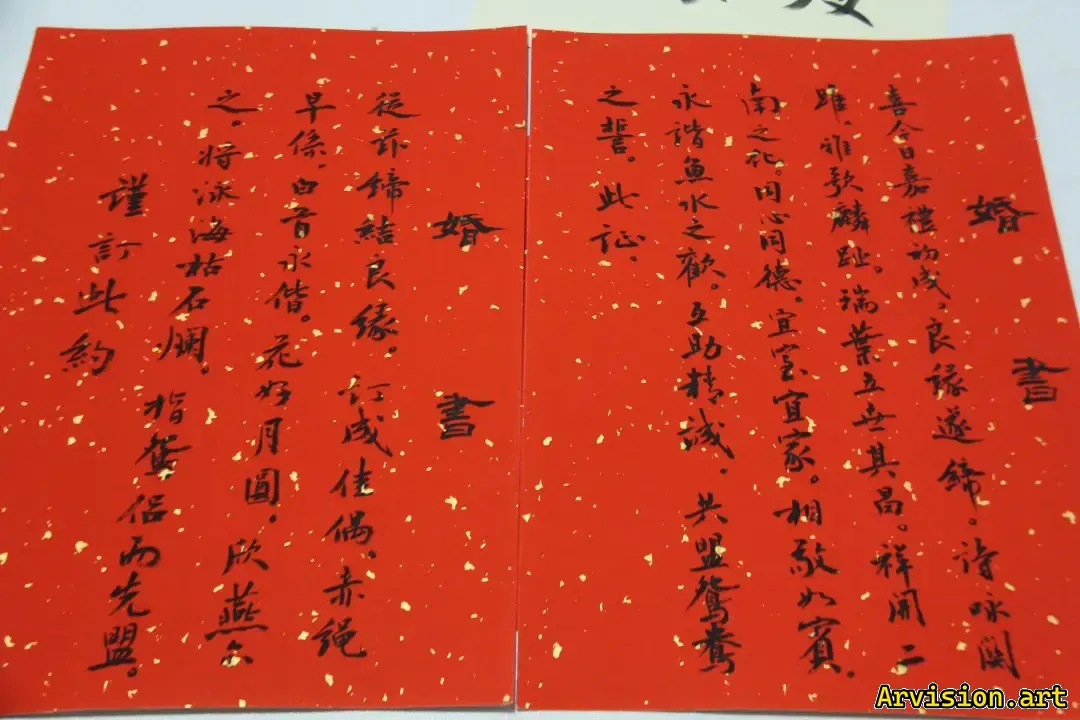 婚書
喜今日嘉禮初成,良緣遂締。詩咏関
雎,雅歌麟趾。瑞葉五世其昌。祥開二
南之化。同心同德。宜室宜家。相敬如賓。
永諧魚水之歡。互助精誠。共盟鴛鴦
之誓。此证。
婚書
從茲締結良緣。订成佳偶、赤绳
早係。白首永偕。花好月圓,欣燕尔
之。将泳海枯石爛。指鴛侣而先盟。
謹訂此約
Arvision.art